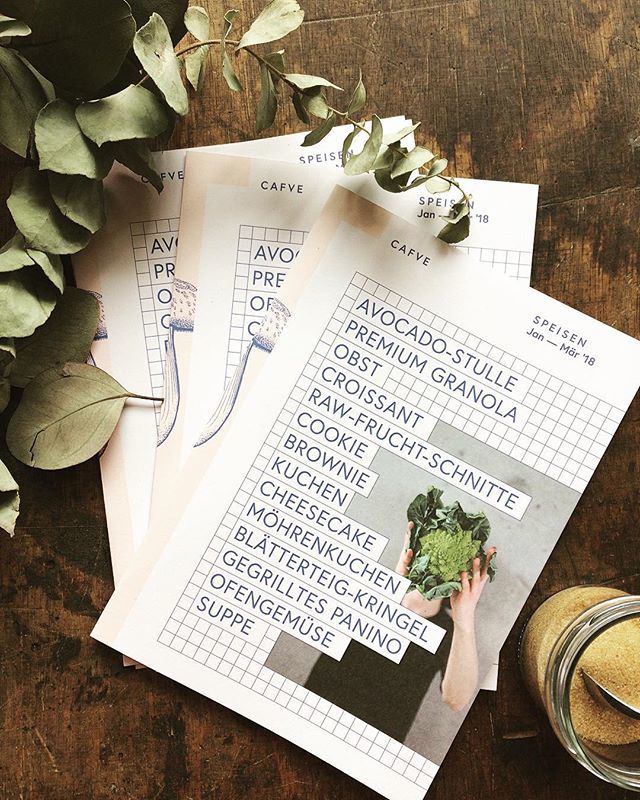 CAFVE
SPEISEN
CAFVE
SPEISEN
Jan — Mär '18
CAFVE
SPEISEN
Jan — Mär '18
AVOCADO-STULLE
PREMIUM GRANOLA
OBST
CROISSANT
RAW-FRUCHT-SCHNITTE
COOKIE
BROWNIE
KUCHEN
CHEESECAKE
MÖHRENKUCHEN
BLÄTTERTEIG-KRINGEL
GEGRILLTES PANINO
OFENGEMÜSE
SUPPE